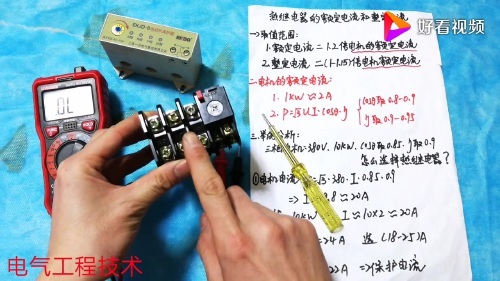 好看视频
热继电器的额定电流和整定电流
一、取值范围:
1.额定电流=1.2倍电机的额定电流
2.整定电流=(1-1.15)倍电机的额定电流
二.电机的额定电流:
1. 1KW≈2A
2. P=√3UI·cosφ·η
cosφ取0.8-0.9
η取0.9-0.95
OL
380V. 10KW. cosφ取0.85. η取0.9
怎么选择热继电器?
①电机电流
·380·I·0.85·0.9
≈20A
I≈10×2≈20A
=24A 选(18-25)A
22A ⇒保护电流
电气工程技术